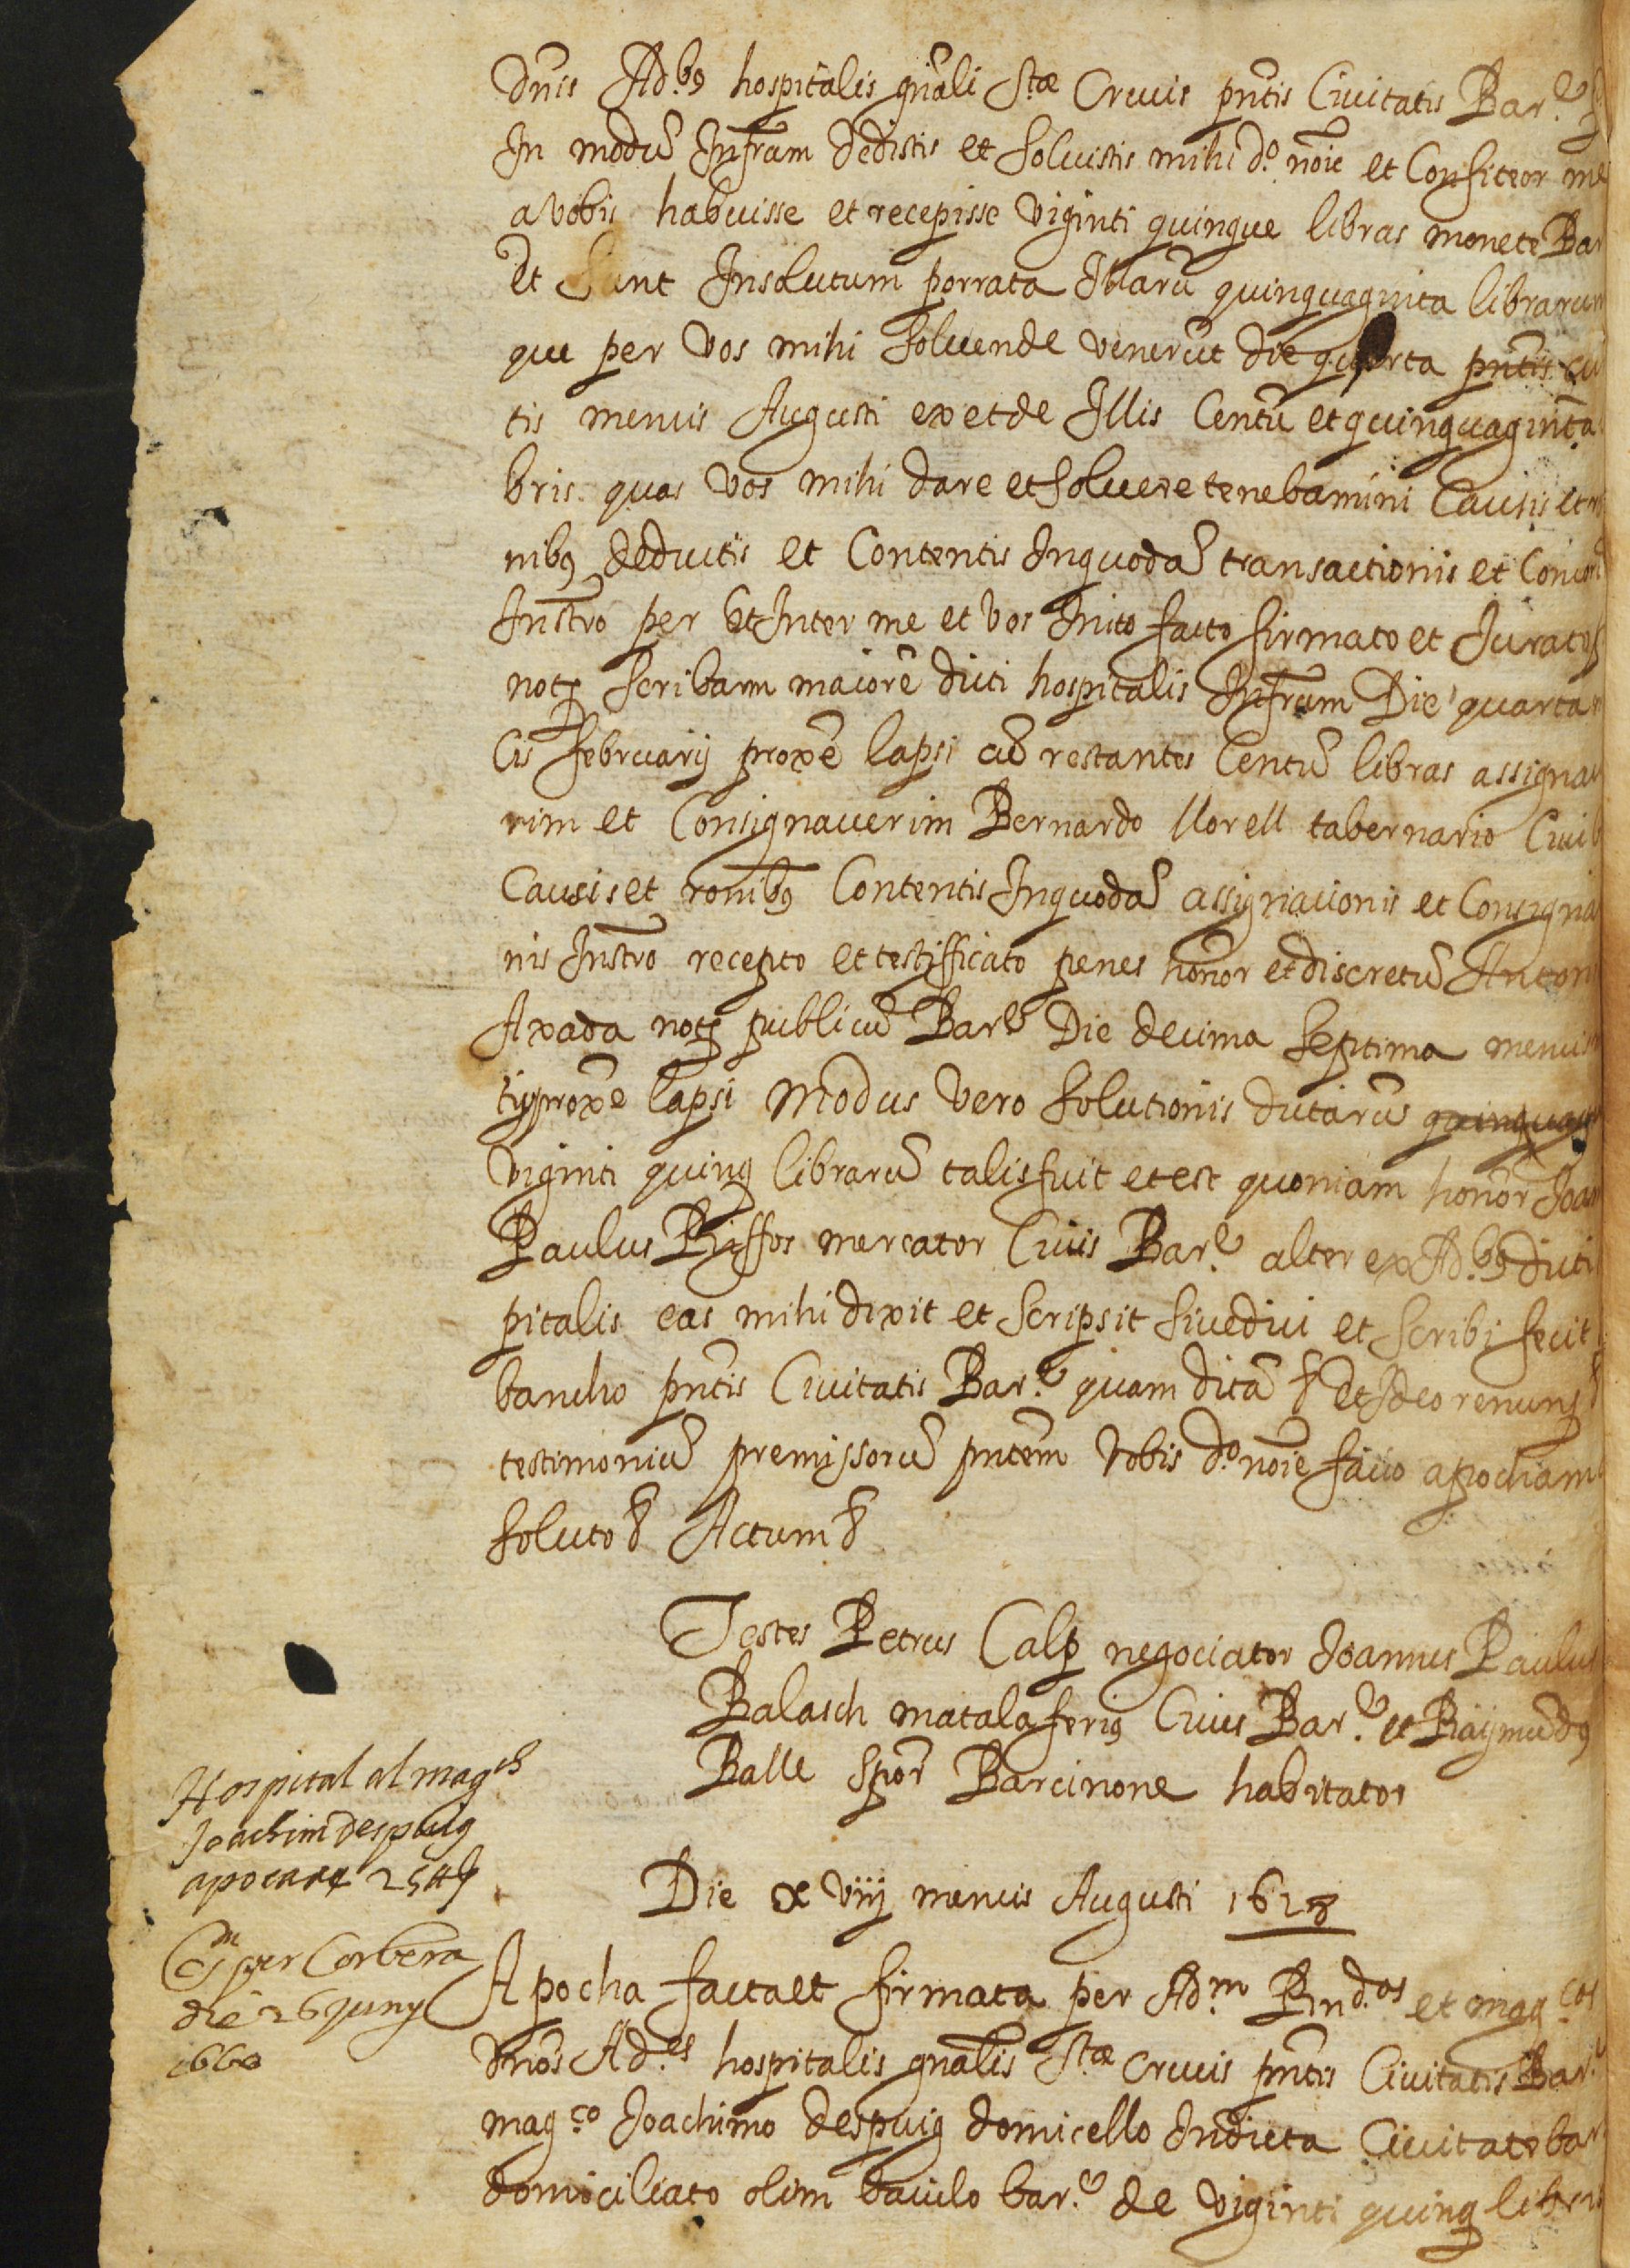 Dnis Ad.bs hospitalis gnali Stæ Crucis pntis Ciuitatis Bar.e
In modũ Infram dedistis et soluistis mihi d.o noie et Confiteor me
a vobis habuisse et recepisse viginti quinque libras monete Bar
Et sunt Insolutum porrata Illarũ quinquaginta librarum
que per vos mihi soluende venerũt die quarta pntis cu
tis mensis Augusti ex et de Illis Centũ et quinquaginta
bris quas vos mihi dare et soluere tenebamini Causis et
nibs deductis et Contentis Inquodã transactionis et Concord
Instro per Et Inter me et vos Inito facto firmato et Jurato
not scribam maiorẽ dicti hospitalis Infrum Die quarta
cis februarij proxẽ lapsi cũ restantes Centũ libras assigna
rim et Consignauerim Bernardo llorell tabernario Ciui
Causis et ronibs Contentis Inquodã assignacionis et Consigna
nis Instro recepto et testifficato penes honor et discretũ Anton
Axada not publicũ Bar.e Die decima septima mensis
tij proxẽ lapsi Modus vero solutionis dictarũ quinquag
viginti quinq librarũ talis fuit et est quoniam honor Joan
Paulus Riffos mercator Ciuis Bar.e alter ex Ad.bs dicti
pitalis eas mihi dixit et scripsit siue dici et scribi fecit
bancho pntis Ciuitatis Bar.e quam dictã & Et Ideo renung
testimoniũ premissorũ pntem vobis d.o noie facio apocham
soluto & Actum &
Testes Petrus Calp negociator Joannes Paulus
Balasch matalaferis Ciues Bar.e et Raymũds
Balle spor Barcinone habitator
Hospital al magch
Joachim despuig
apoca de 25 ℔
Die x viij mensis Augusti 1628
per Corbera
die 26 juny
1660
Apocha facta et firmata per Ad.m Rnd.os et mag.cos
Dnos Ad.es hospitalis gnalis Stæ Crucis pntis Ciuitatis Bar.e
mag.co Joachimo despuig domicello Indicta Ciuitate bar
domiciliato olim baiulo bar.e de viginti quinq libris